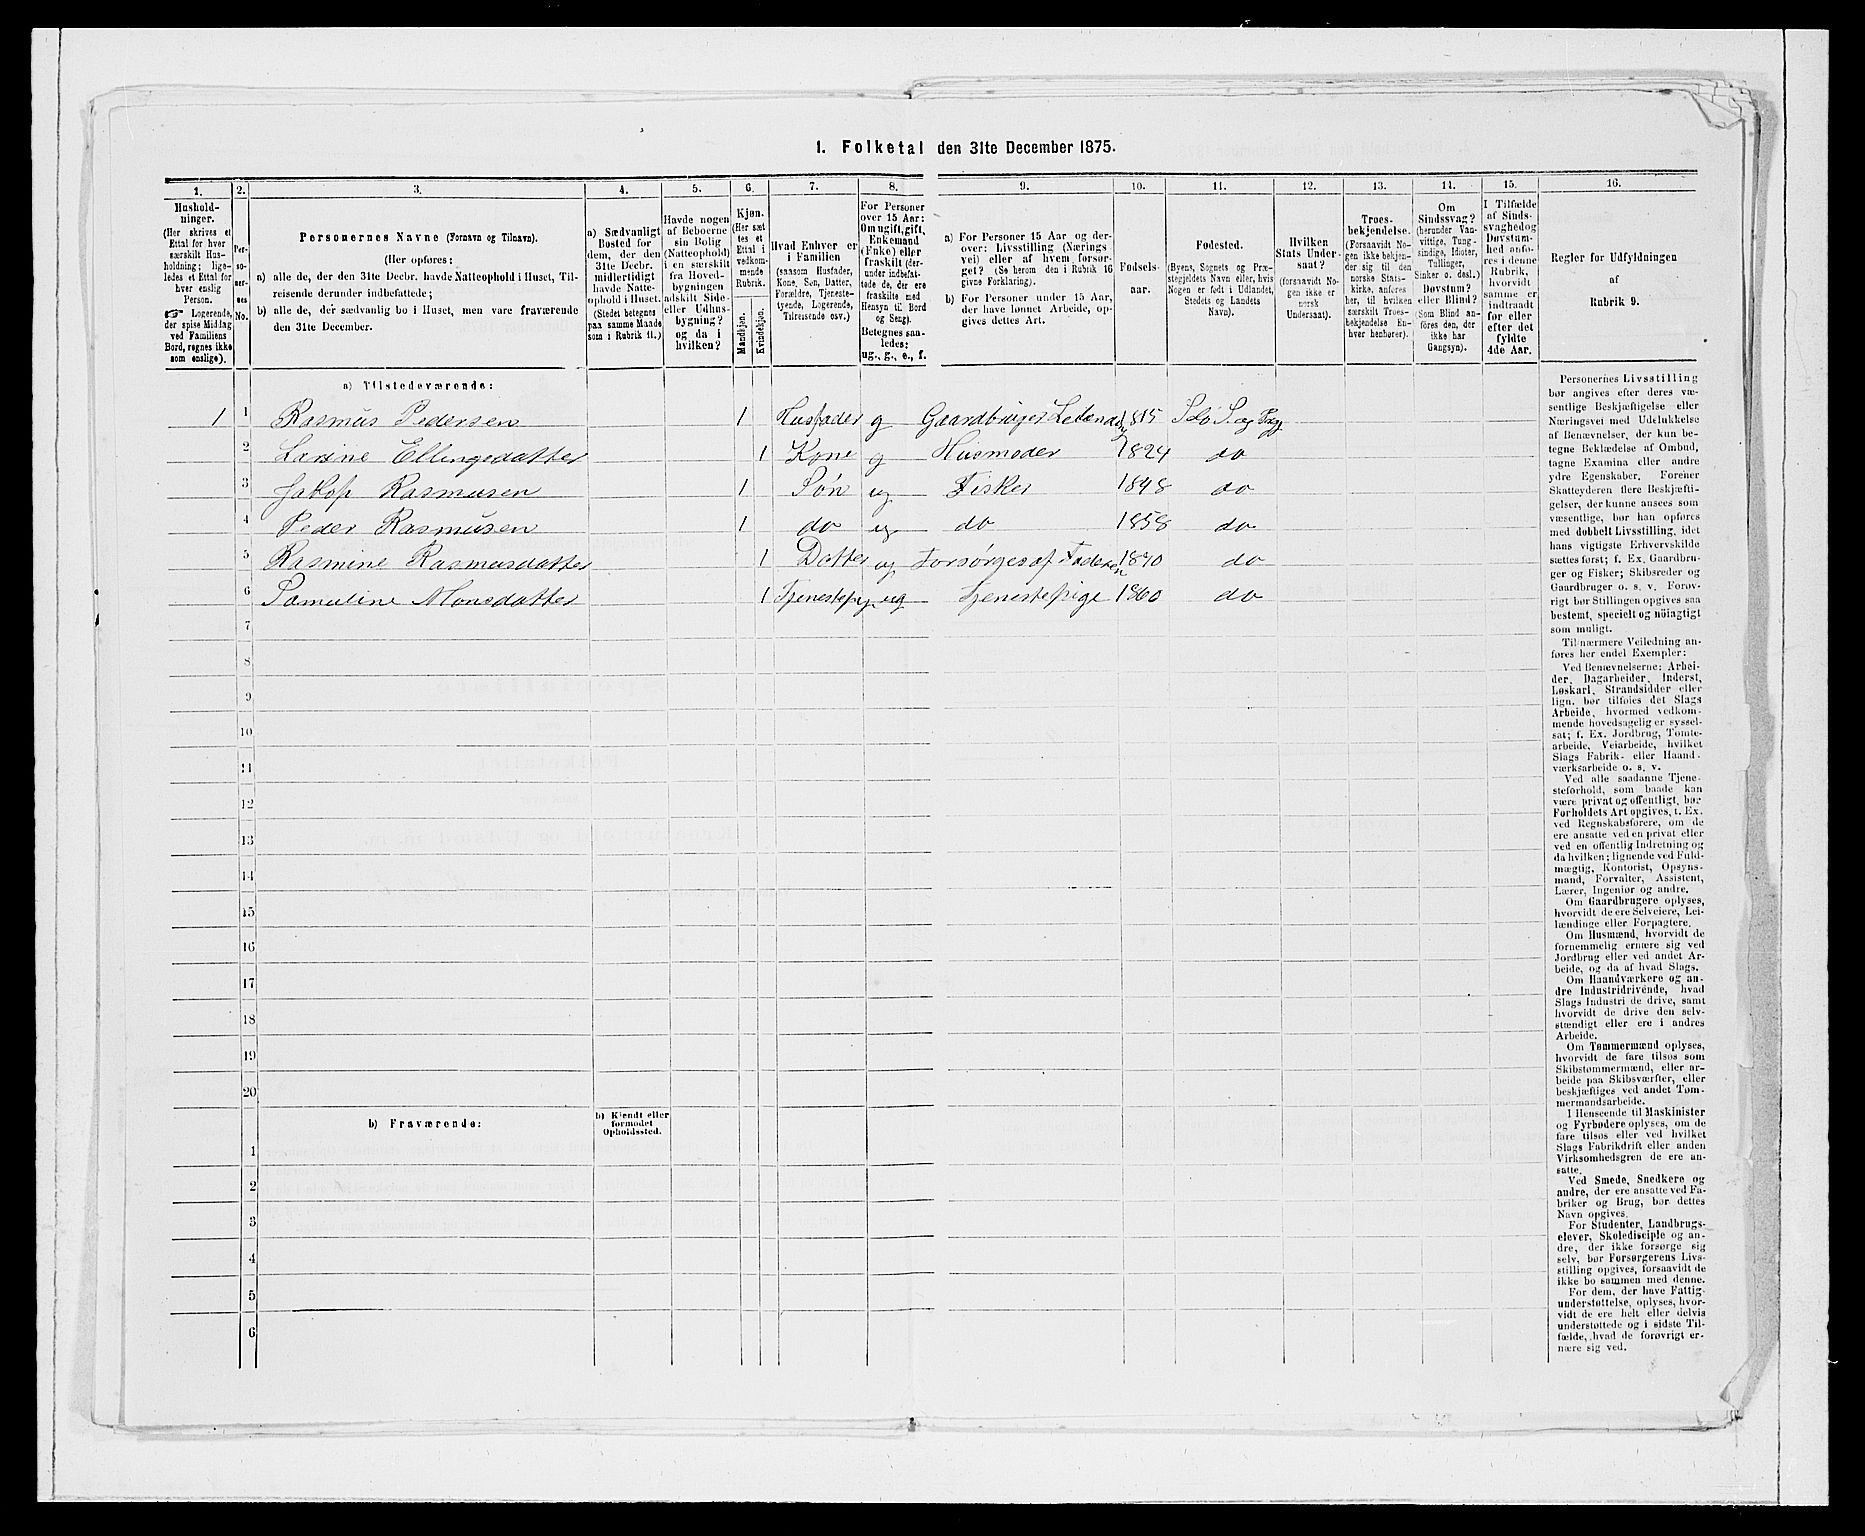 1. Folketal den 31te December 1875.
1. 2. 3. 4. 5. 6. 7. 8. 9. 10. 11. 12. 13. 14. 15. 16.
Hushold-
ninger.
(Her skrives et
Ettal for hver
særskilt Hus-
holdning; lige-
ledes et Ettal for
hver enslig
Person.
☞ Logerende,
der spise Middag
ved Familiens
Bord, regnes ikke
som enslige).
Per-
so-
ner-
nes
No.
Personernes Navne (Fornavn og Tilnavn).
(Her opføres:
a) alle de, der den 31te Decbr. havde Natteophold i Huset, Til-
reisende derunder indbefattede;
b) alle de, der sædvanlig bo i Huset, men vare fraværende
den 31te December.
a) Sædvanligt
Bosted for
dem, der den
31te Decbr.
midlertidigt
havde Natte-
ophold i Huset.
(Stedet betegnes
paa samme Maade
som i Rubrik 11.)
Havde nogen
af Beboerne
sin Bolig
(Natteophold)
i en særskilt
fra Hoved-
bygningen
adskilt Side-
eller Udhus-
bygning?
og da i
hvilken?
Kjøn.
(Her sæt
tes et
Ettal i
vedkom-
mende
Rubrik.
Mandkjøn.
Kvindekjøn.
Hvad Enhver er
i Familien
(saasom Husfader,
Kone, Søn, Datter,
Forældre, Tjeneste-
tyende, Logerende,
Tilreisende osv.)
For Personer
over 15 Aar:
Om ugift, gift,
Enkemand
(Enke) eller
fraskilt (der-
under indbefat-
tede de, der ere
fraskilte med
Hensyn til Bord
og Seng).
Betegnes saa-
ledes:
ug., g., e., f.
a) For Personer 15 Aar og der-
over: Livsstilling (Nærings
vei) eller af hvem forsør-
get? (Se herom den i Rubrik 16
givne Forklaring).
b) For Personer under 15 Aar,
der have lønnet Arbeide, op-
gives dettes Art.
Fødsels-
aar.
Fødested.
(Byens, Sognets og Præ-
stegjeldets Navn eller, hvis
Nogen er født i Udlandet,
Stedets og Landets
Navn).
Hvilken
Stats Under-
saat?
(forsaavidt No-
gen ikke er
norsk
Undersaat).
Troes-
bekjendelse.
(Forsaavidt No-
gen ikke bekjen-
der sig til den
norske Stats-
kirke, anføres
her, til hvilken
særskilt Troes-
bekjendelse En-
hver henhører).
Om
Sindssvag?
(herunder Van-
vittige, Tung-
sindige, Idioter,
Tullinger,
Sinker o. desl.)
Døvstum?
eller Blind?
(Som Blind an-
føres den, der
ikke har
Gangsyn).
I Tilfælde
af Sinds-
svaghed og
Døvstum-
hed anfø-
res i denne
Rubrik,
hvorvidt
samme er
indtraadt
før eller
efter det
fyldte
4de Aar.
Regler for Udfyldningen
af
Rubrik 9.
a) Tilstedeværende:
1 1 Rasmus Pedersen 1 Husfader g Gaardbruger 1815 S. og
2 Larine Ellingsdatter 1 Kone g Husmoder 1824 do
3 Jakop Rasmusen 1 Søn ug Fisker 1848 do
4 Peder Rasmusen 1 do ug do 1858 do
5 Rasmine Rasmusdatter 1 Datter ug Forsørges af Faderen 1840 do
6 Samuline Monsdatter 1 Tjenestepige ug Tjenestepige 1860 do
7
8
9
10
11
12
13
14
15
16
17
18
19
20
b) Fraværende:
b) Kjendt eller
formodet
Opholdssted.
1
2
3
4
5
6
Personernes Livsstilling
bør angives efter deres væ-
sentlige Beskjæftigelse eller
Næringsvei med Udelukkelse
af Benævnelser, der kun be-
tegne Beklædelse af Ombud,
tagne Examina eller andre
ydre Egenskaber. Forener
Skatteyderen flere Beskjæfti-
gelser, der kunne ansees som
væsentlige, bør han opføres
med dobbelt Livsstilling, idet
hans vigtigste Erhvervskilde
sættes først; f. Ex. Gaardbru-
ger og Fisker; Skibsreder og
Gaardbruger o. s. v. Forøv-
rigt bør Stillingen opgives saa
bestemt, specielt og nøiagtigt
som muligt.
Til nærmere Veiledning an-
føres her endel Exempler:
Ved Benævnelserne: Arbei-
der, Dagarbeider, Inderst,
Løskarl, Strandsidder eller
lign. bør tilføies det Slags
Arbeide, hvormed vedkom-
mende hovedsagelig er syssel-
sat; f. Ex. Jordbrug, Tomte-
arbeide, Veiarbeide, hvilket
Slags Fabrik- eller Haand-
værksarbeide o. s. v.
Ved alle saadanne Tjene-
steforhold, som baade kan
være privat og offentligt, bør
Forholdets Art opgives, t. Ex.
ved Regnskabsførere, om de
ere ansatte ved en privat eller
ved en offentlig Indretning og
da hvilken; lignende ved Fuld-
mægtig, Kontorist, Opsyns-
mand, Forvalter, Assistent,
Lærer, Ingeniør og andre.
Om Gaardbrugere oplyses,
hvorvidt de ere Selveiere, Lei-
lændinge eller Forpagtere.
Om Husmænd, hvorvidt de
fornemmelig ernære sig ved
Jordbrug eller ved andet Ar-
beide, og da af hvad Slags.
Om Haandværkere og an-
dre Industridrivende, hvad
Slags Industri de drive, samt
hvorvidt de drive den selv-
stændigt eller ere i andres
Arbeide.
Om Tømmermænd oplyses,
hvorvidt de fare tilsøs som
Skibstømmermænd, eller ar-
beide paa Skibsværfter, eller
beskjæftiges ved andet Tøm-
mermandsarbeide.
I Henseende til Maskinister
og Fyrbødere oplyses, om de
fare tilsøs eller ved hvilket
Slags Fabrikdrift eller anden
Virksomhedsgren de ere an-
satte.
Ved Smede, Snedkere og
andre, der ere ansatte ved Fa-
briker og Brug, bør dettes
Navn opgives.
For Studenter, Landbrugs-
elever, Skoledisciple og an-
dre, der ikke forsørge sig
selv, bør Forsørgerens Livs-
stilling opgives, forsaavidt de
ikke bo sammen med denne.
For dem, der have Fattig-
understøttelse, oplyses, hvor-
vidt de ere helt eller delvis
understøttede og i sidste Til-
fælde, hvad de forøvrigt er-
nære sig ved.